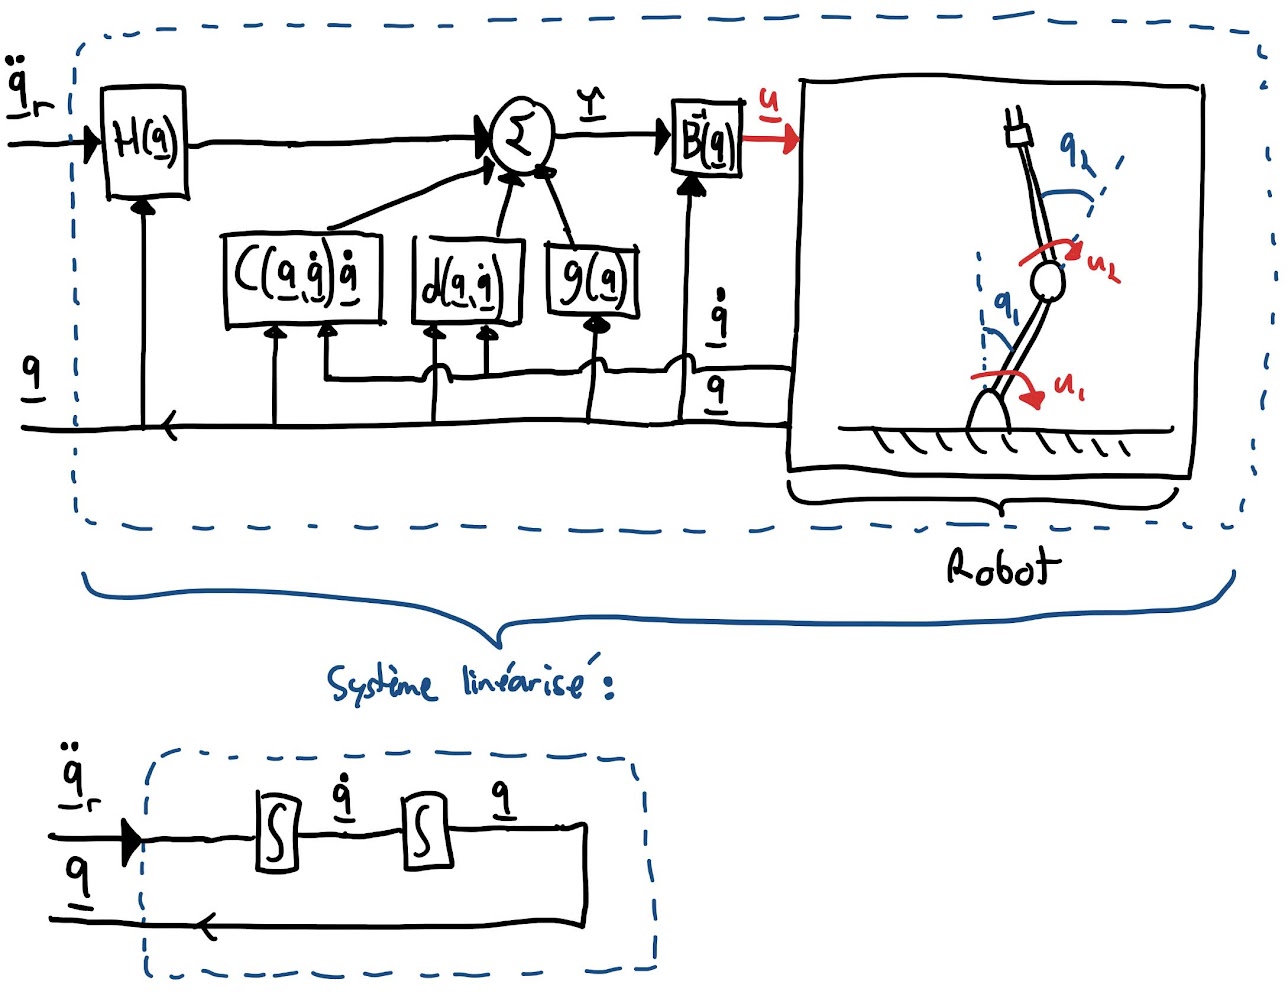 q̈r
H(q)
Σ
γ
B⁻¹(q)
u
q2
C(q,q̇)q̇
d(q,q̇)
g(q)
u2
q1
q̇
q
q
u1
Robot
Système linéarisé :
q̈r
∫
q̇
∫
q
q